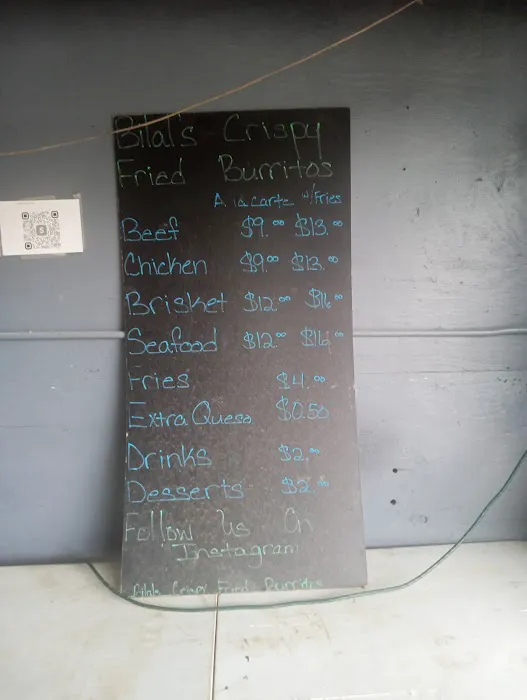 Bilal's Crispy
Fried Burritos
A la carte w/Fries
Beef $9.00 $13.00
Chicken $9.00 $13.00
Brisket $12.00 $16.00
Seafood $12.00 $16.00
Fries $4.00
Extra Queso $0.50
Drinks $2.00
Desserts $2.00
Follow Us On
Instagram
Bilals Crispy Fried Burritos